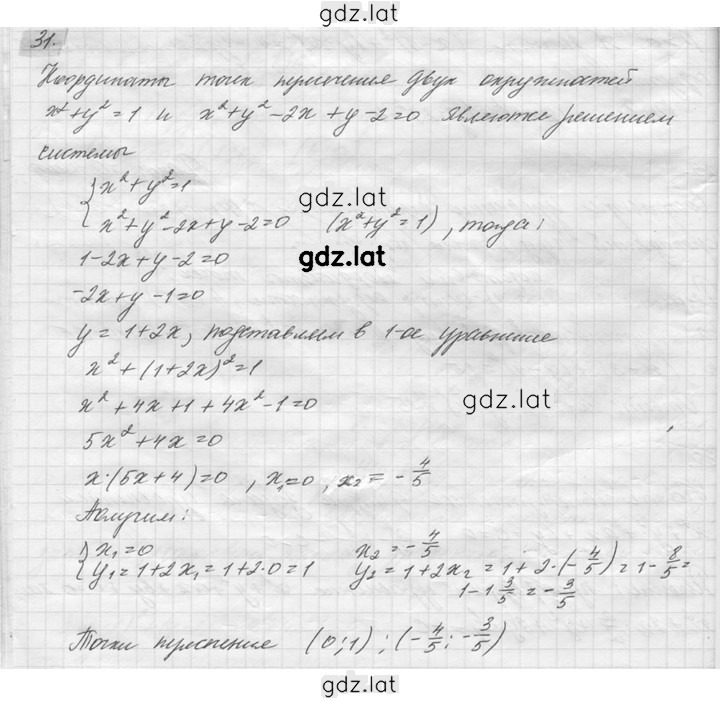 gdz.lat
31.
Координаты точек пересечения двух окружностей
x² + y² = 1 и x² + y² - 2x + y - 2 = 0 являются решением
системы
{ x² + y² = 1
x² + y² - 2x + y - 2 = 0 (x² + y² = 1), тогда:
gdz.lat
1 - 2x + y - 2 = 0
gdz.lat
-2x + y - 1 = 0
y = 1 + 2x, подставляем в 1-ое уравнение
x² + (1 + 2x)² = 1
x² + 4x + 1 + 4x² - 1 = 0
gdz.lat
5x² + 4x = 0
x · (5x + 4) = 0 , x₁ = 0 , x₂ = - 4/5
Получим:
{ x₁ = 0 x₂ = - 4/5
y₁ = 1 + 2x₁ = 1 + 2·0 = 1 y₂ = 1 + 2x₂ = 1 + 2·(- 4/5) = 1 - 8/5 =
1 - 1 3/5 = - 3/5
Точки пересечения (0; 1) ; (- 4/5 ; - 3/5)
gdz.lat